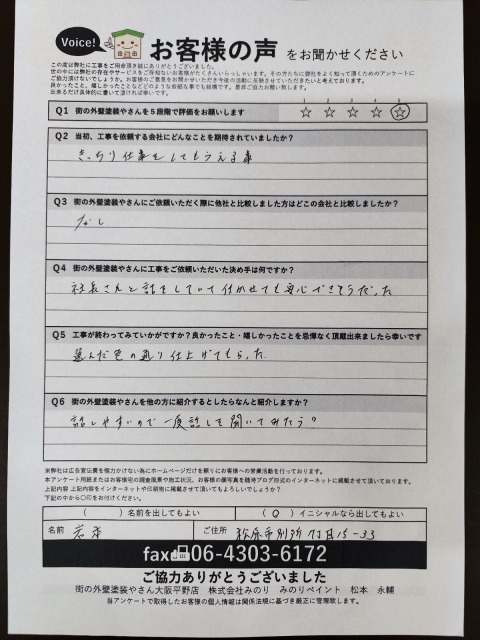 Voice!
お客様の声 をお聞かせください
この度は弊社に工事をご用命頂き誠にありがとうございました。
世の中には弊社の存在やサービスをご存知ないお客様がたくさんいらっしゃいます。その方たちに弊社をよく知って頂くためのアンケートに
ご協力頂けないでしょうか。お客様のご意見をお聞かせいただき今後の活動に反映させていただきたいと考えております。
良かったこと、嬉しかったことなどどのような些細な事でも結構です。是非ご協力お願い致します。
出来るだけ具体的に書いて頂ければ幸いです。
1 2 3 4 5
Q1 街の外壁塗装やさんを5段階で評価をお願いします ☆ ☆ ☆ ☆ ☆
Q2 当初、工事を依頼する会社にどんなことを期待されていましたか?
きっちり仕事をしてもらえる事
Q3 街の外壁塗装やさんにご依頼いただく際に他社と比較しました方はどこの会社と比較しましたか?
なし
Q4 街の外壁塗装やさんに工事をご依頼いただいた決め手は何ですか?
社長さんと話をしていて任かせても安心できそうだった
Q5 工事が終わってみていかがですか?良かったこと・嬉しかったことを忌憚なく頂戴出来ましたら幸いです
選んだ色の通り仕上げてもらった
Q6 街の外壁塗装やさんを他の方に紹介するとしたらなんと紹介しますか?
話しやすいので一度話しを聞いてみたら?
※弊社は広告宣伝費を極力かけない為にホームページだけを頼りにお客様への営業活動を行っております。
本アンケート用紙またはお客様宅の調査風景や施工状況、お客様の顔写真を随時ブログ形式のインターネットに掲載させて頂いております。
上記内容 上記内容をインターネットや印刷物に掲載させて頂いてもよろしいでしょうか?
下記の中から〇印をお付けください。
( )名前を出してもよい ( ○ )イニシャルなら出してもよい
名前 岩本 ご住所 松原市別所7丁目15-33
fax 06-4303-6172
ご協力ありがとうございました
街の外壁塗装やさん大阪平野店 株式会社みのり みのりペイント 松本 永輔
当アンケートで取得したお客様の個人情報は関係法規に基づき厳正に管理致します。